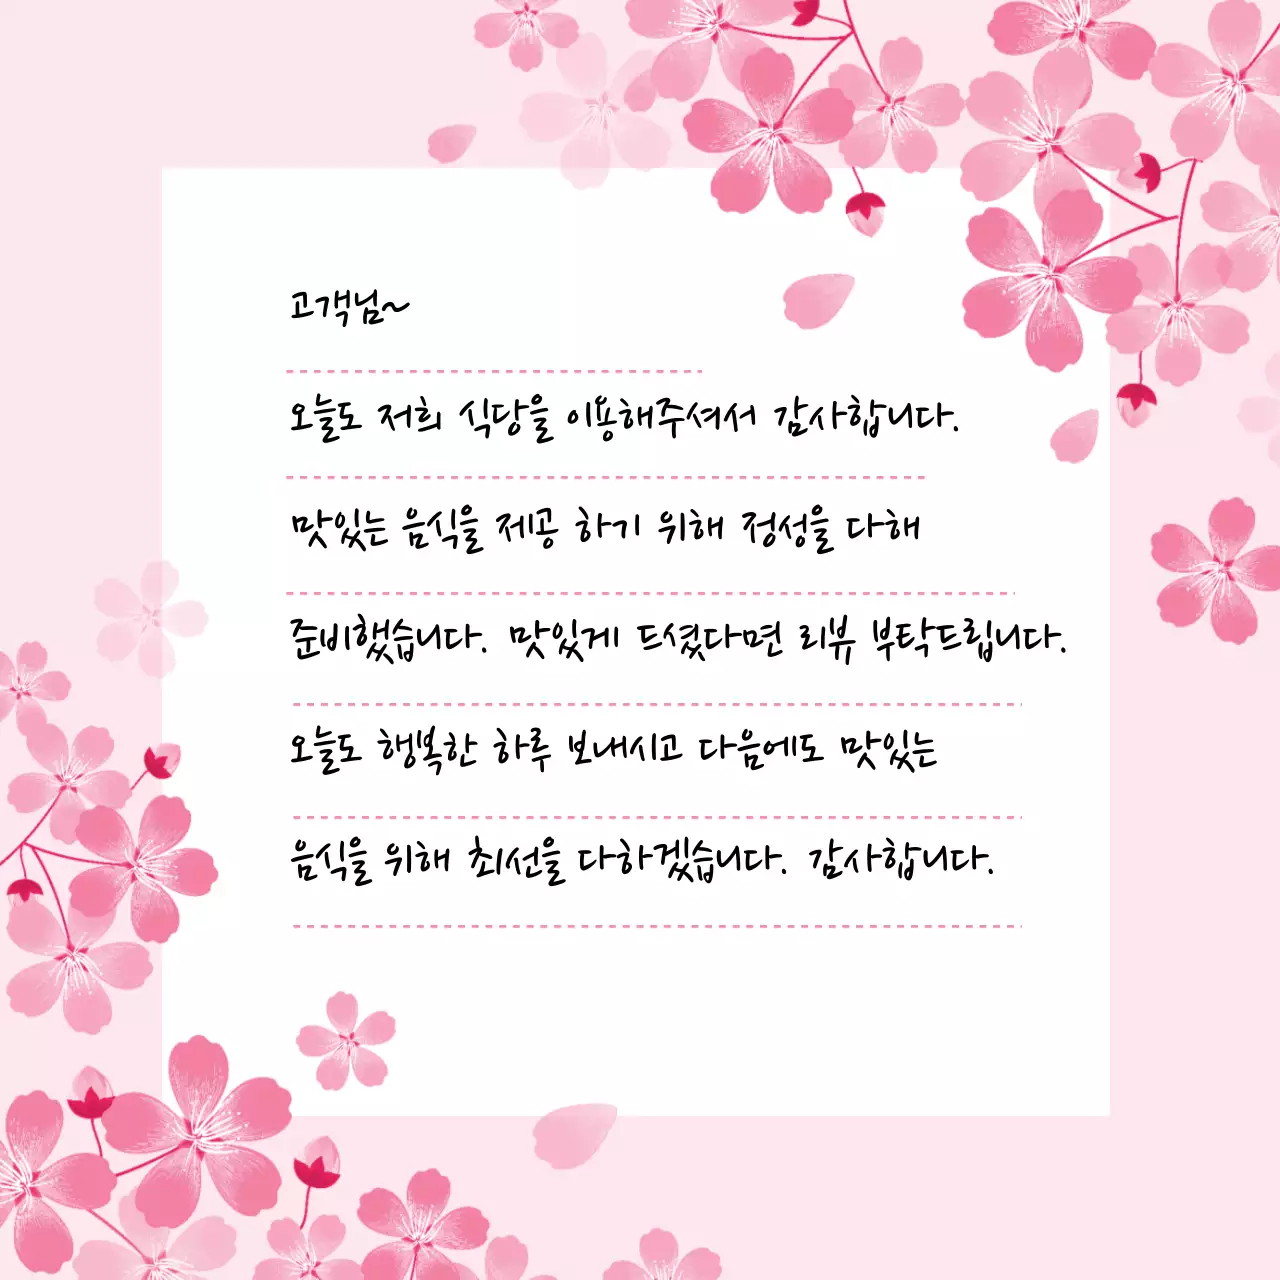 고객님~
오늘도 저희 식당을 이용해주셔서 감사합니다.
맛있는 음식을 제공 하기 위해 정성을 다해
준비했습니다. 맛있게 드셨다면 리뷰 부탁드립니다.
오늘도 행복한 하루 보내시고 다음에도 맛있는
음식을 위해 최선을 다하겠습니다. 감사합니다.